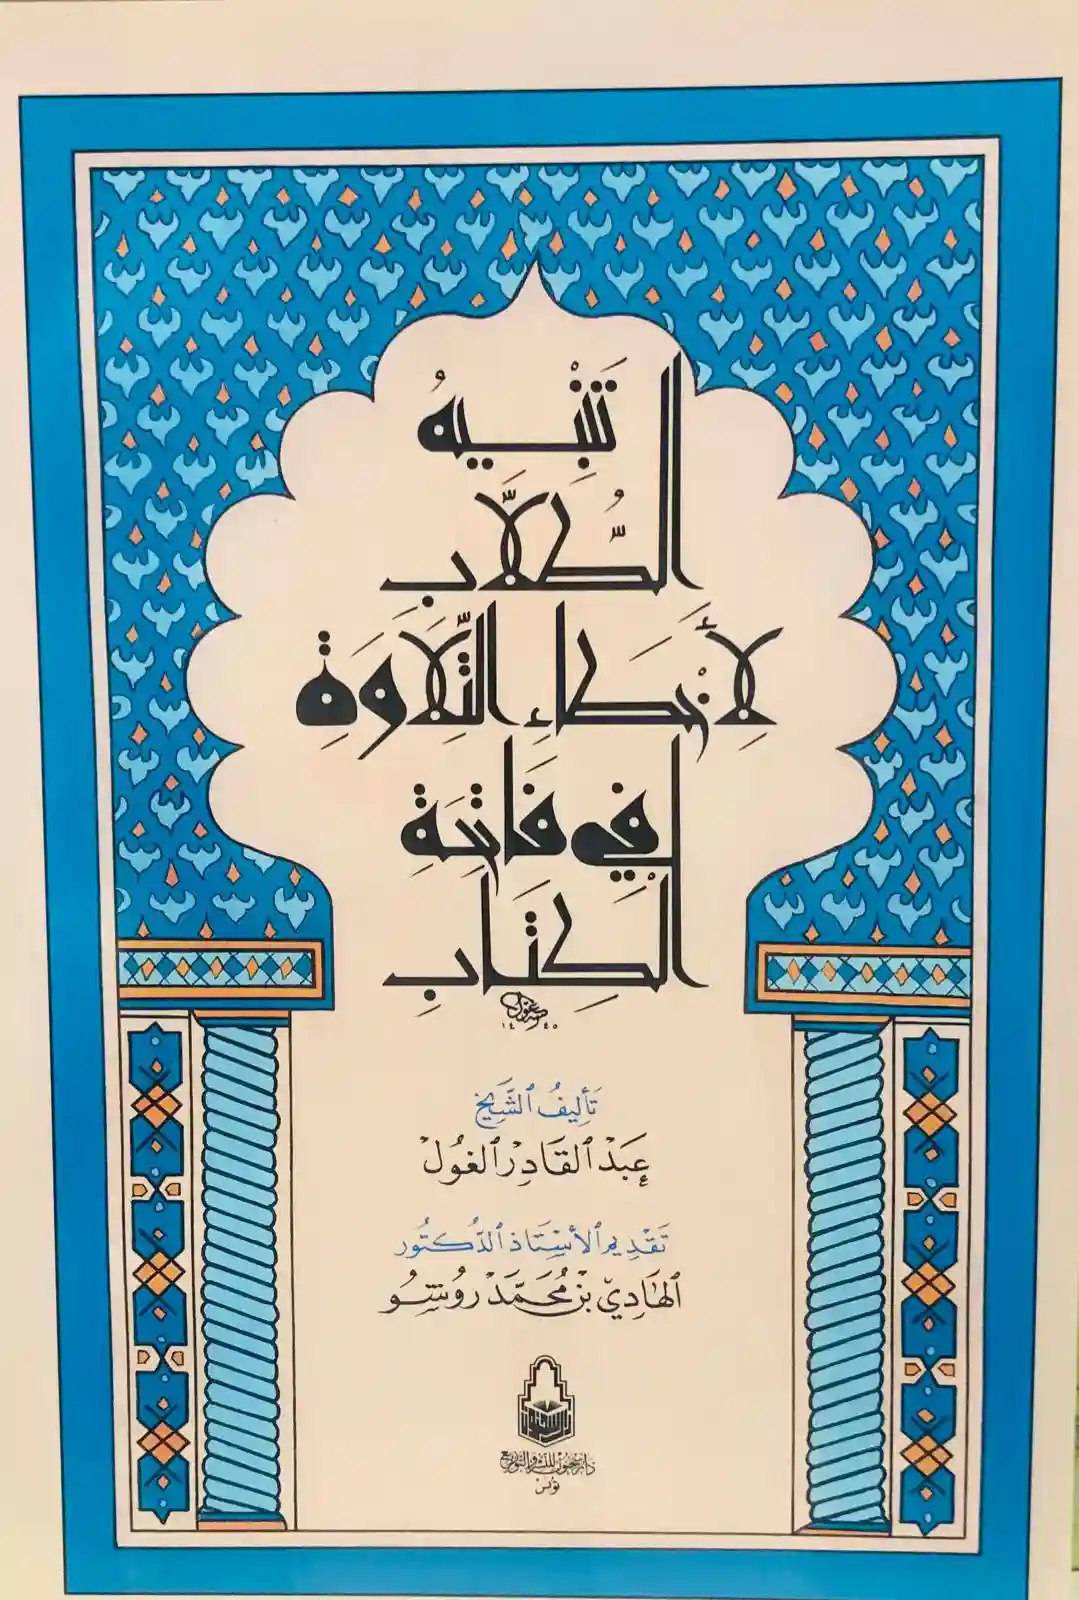 تَنْبِيهُ
الطُّلَّابِ
لِأَخْطَاءِ التِّلَاوَةِ
فِي فَاتِحَةِ
الْكِتَابِ
١٤٤٥
تَأليفُ الشَّيْخ
عَبْد القَادِر الغُول
تَقْدِيم الأسْتَاذ الدُّكتُور
الهَادِي بْن مُحَمَّد رُوشُو
دار سحنون للنشر والتوزيع
تونس